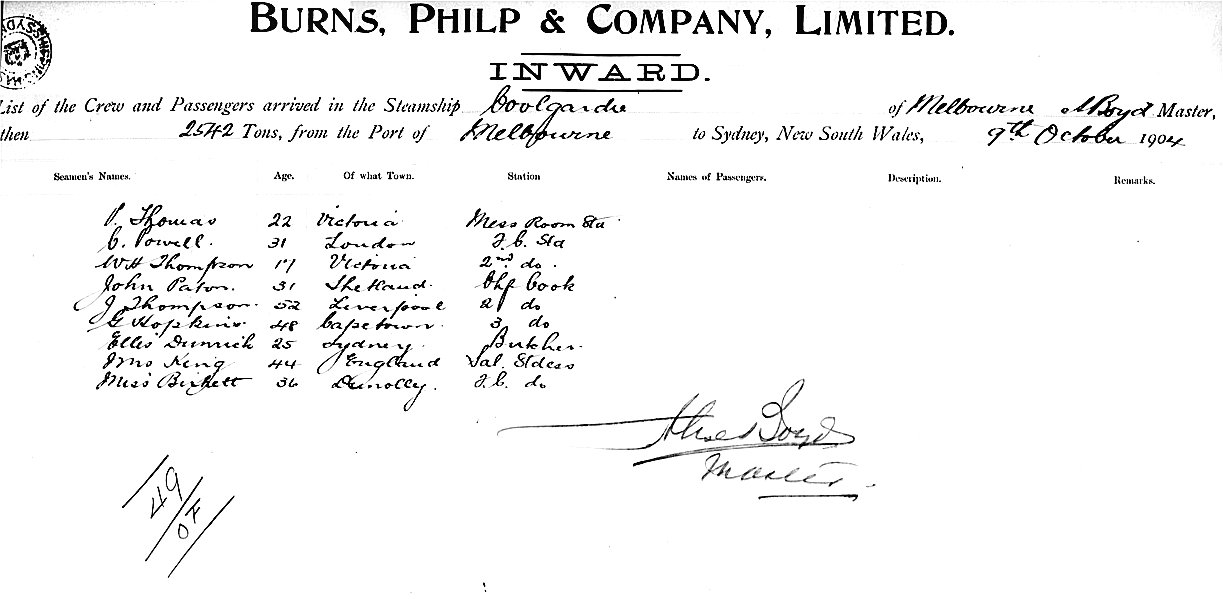 BURNS, PHILP & COMPANY, LIMITED.
INWARD.
List of the Crew and Passengers arrived in the Steamship Coolgardie of Melbourne A Boyd Master,
then 2542 Tons, from the Port of Melbourne to Sydney, New South Wales, 9th October 1904
Seamen's Names. Age. Of what Town. Station Names of Passengers. Description. Remarks.
P. Thomas 22 Victoria Mess Room Std
C. Powell. 31 London F.C. Std
WH Thompson 17 Victoria 2nd do.
John Paton. 31 Shetland. Chf Cook
J Thompson. 52 Liverpool 2 do
G Hopkins. 48 Capetown. 3 do
Ellis 25 Sydney. Butcher.
Mrs King 44 England Sal. Stdess
Miss Birkett 36 Dunolly. F.C. do
Boyd
Master.
49
OF